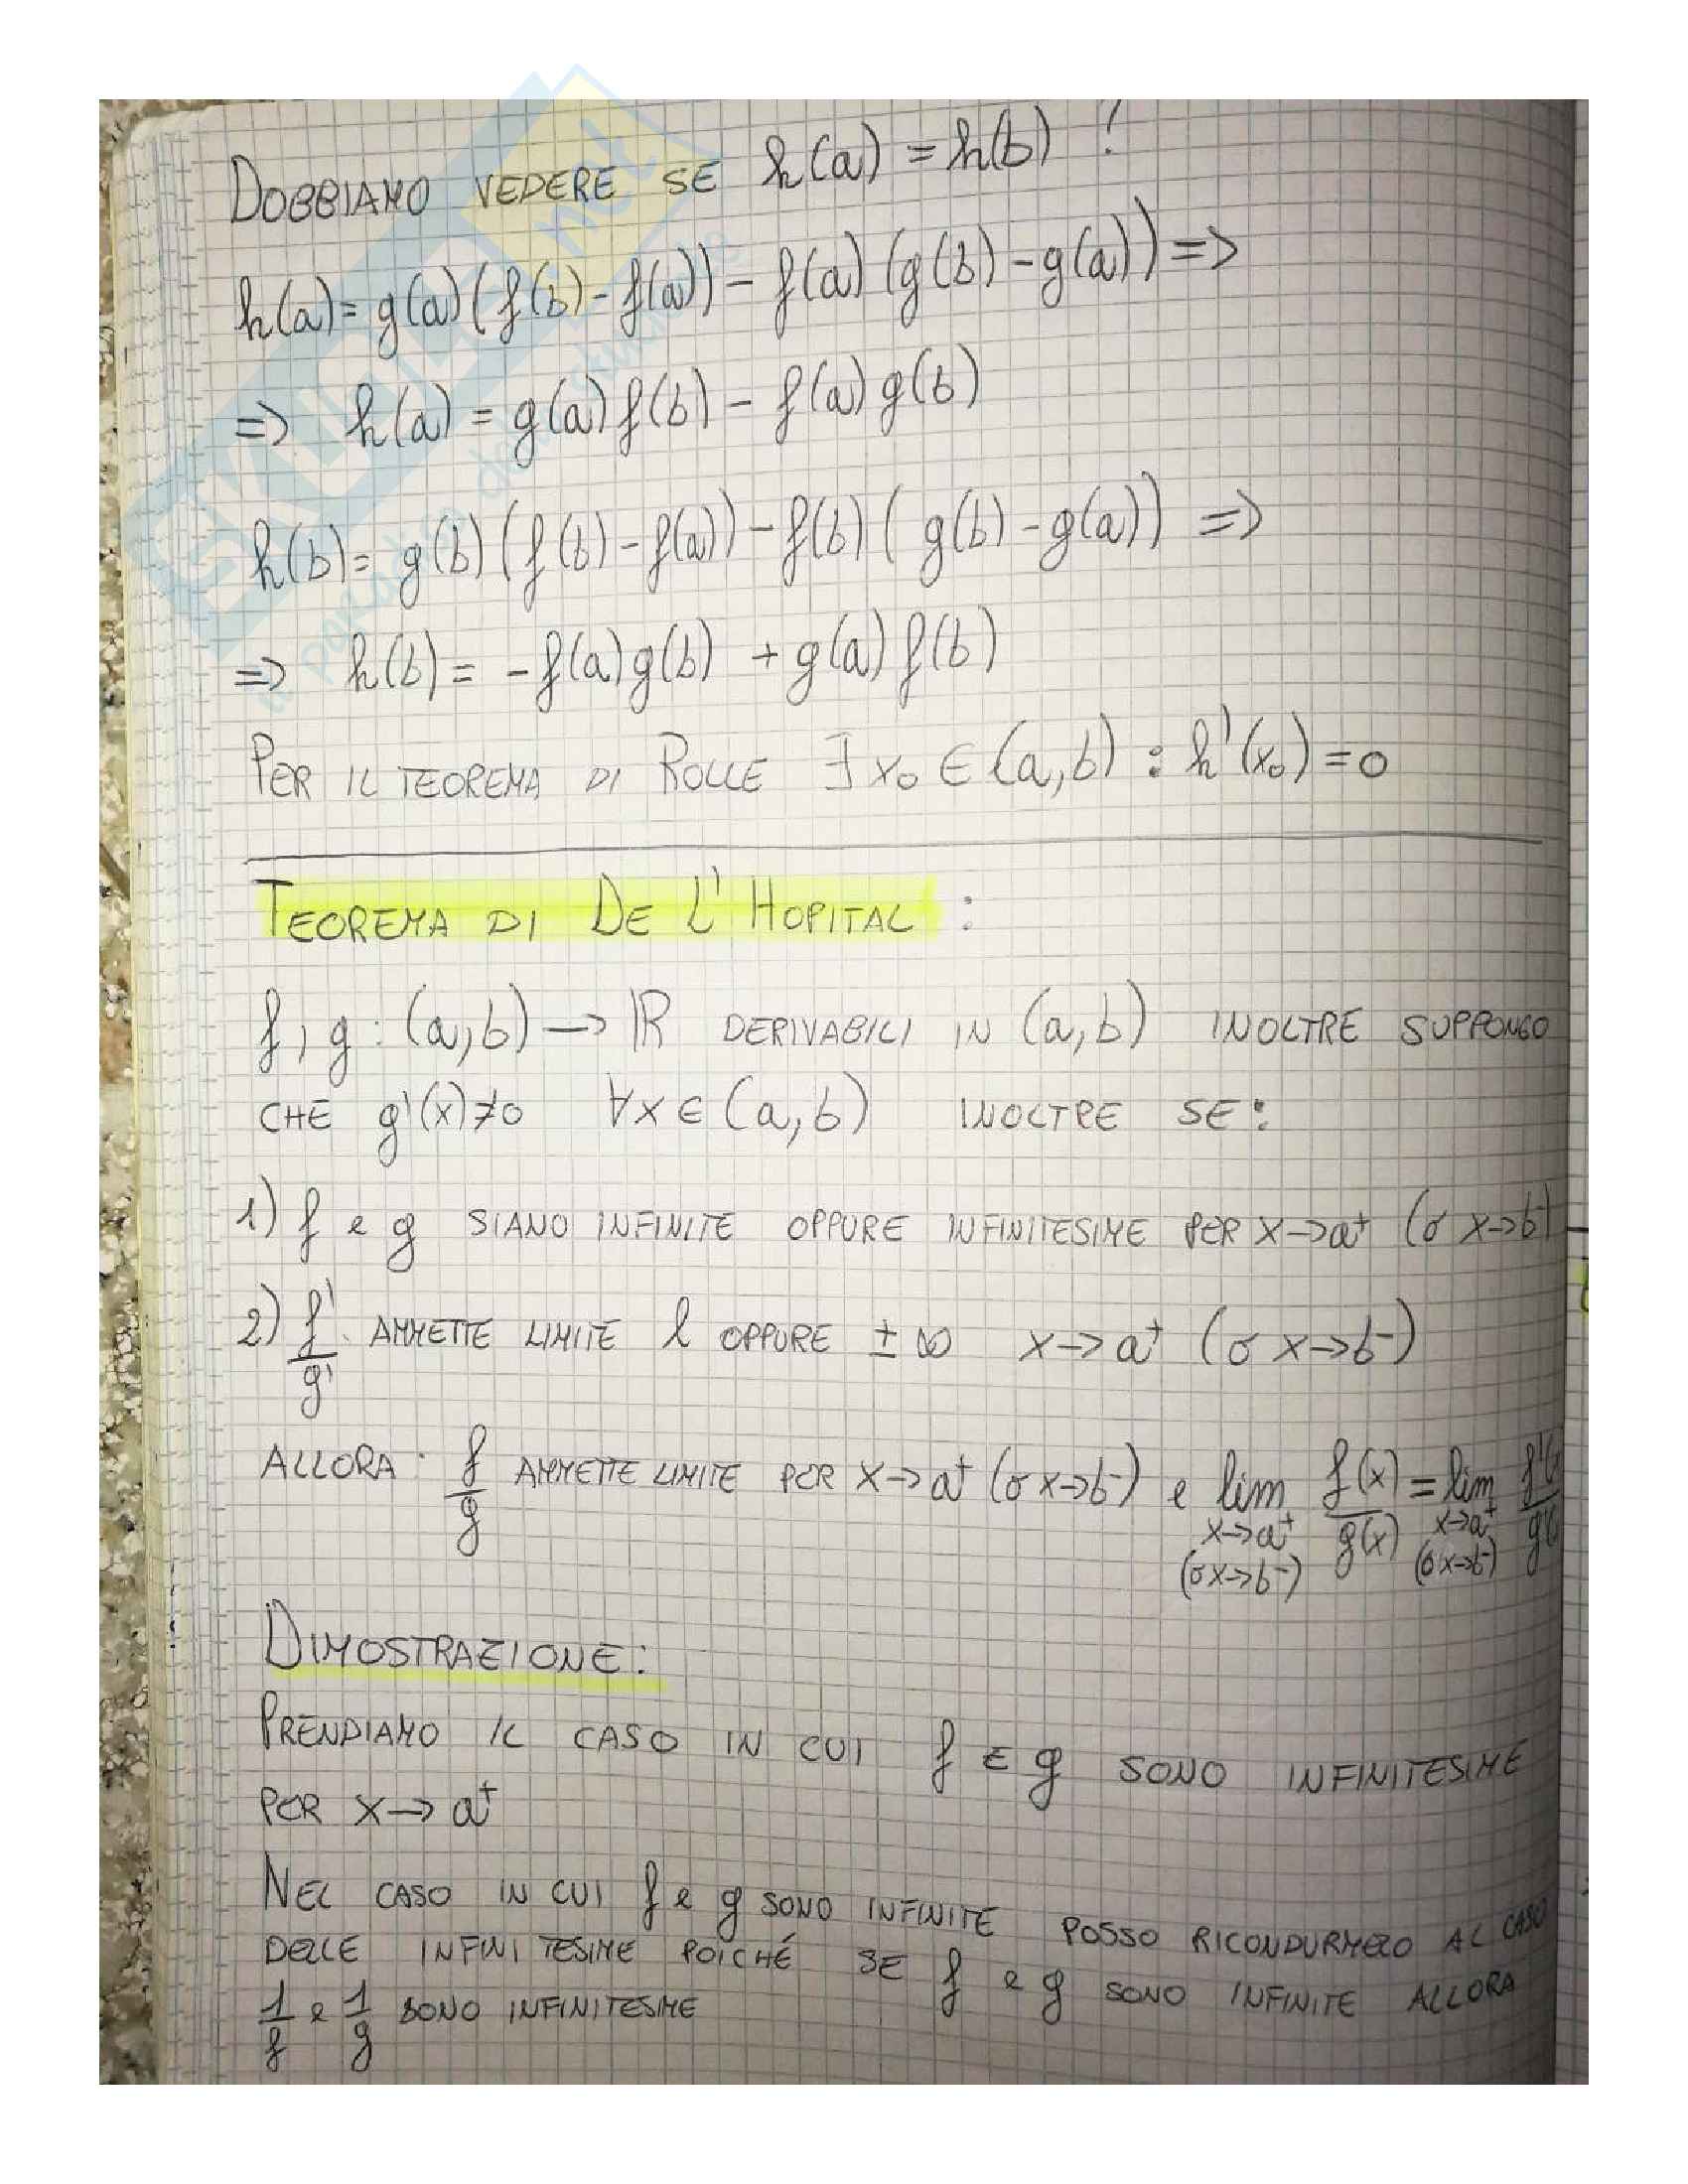 DOBBIAMO VEDERE SE h(a) = h(b) !
h(a) = g(a)(f(b) - f(a)) - f(a)(g(b) - g(a)) =>
=> h(a) = g(a)f(b) - f(a)g(b)
h(b) = g(b)(f(b) - f(a)) - f(b)(g(b) - g(a)) =>
=> h(b) = -f(a)g(b) + g(a)f(b)
PER IL TEOREMA DI ROLLE ∃ x₀ ∈ (a,b) : h'(x₀) = 0
TEOREMA DI DE L'HOPITAL :
f, g : (a,b) → ℝ DERIVABILI IN (a,b) INOLTRE SUPPONGO
CHE g'(x) ≠ 0 ∀x ∈ (a,b) INOLTRE SE:
1) f e g SIANO INFINITE OPPURE INFINITESIME PER x→a⁺ (o x→b⁻)
2) f'/g' AMMETTE LIMITE l OPPURE ±∞ x→a⁺ (o x→b⁻)
ALLORA: f/g AMMETTE LIMITE PER x→a⁺ (o x→b⁻) e lim f(x)/g(x) = lim f'(x/g'(
x→a⁺ x→a⁺
(o x→b⁻) (o x→b⁻)
DIMOSTRAZIONE:
PRENDIAMO IL CASO IN CUI f E g SONO INFINITESIME
PER x→a⁺
NEL CASO IN CUI f e g SONO INFINITE POSSO RICONDURMELO AL CASO
DELLE INFINITESIME POICHÉ SE f e g SONO INFINITE ALLORA
1/f e 1/g SONO INFINITESIME